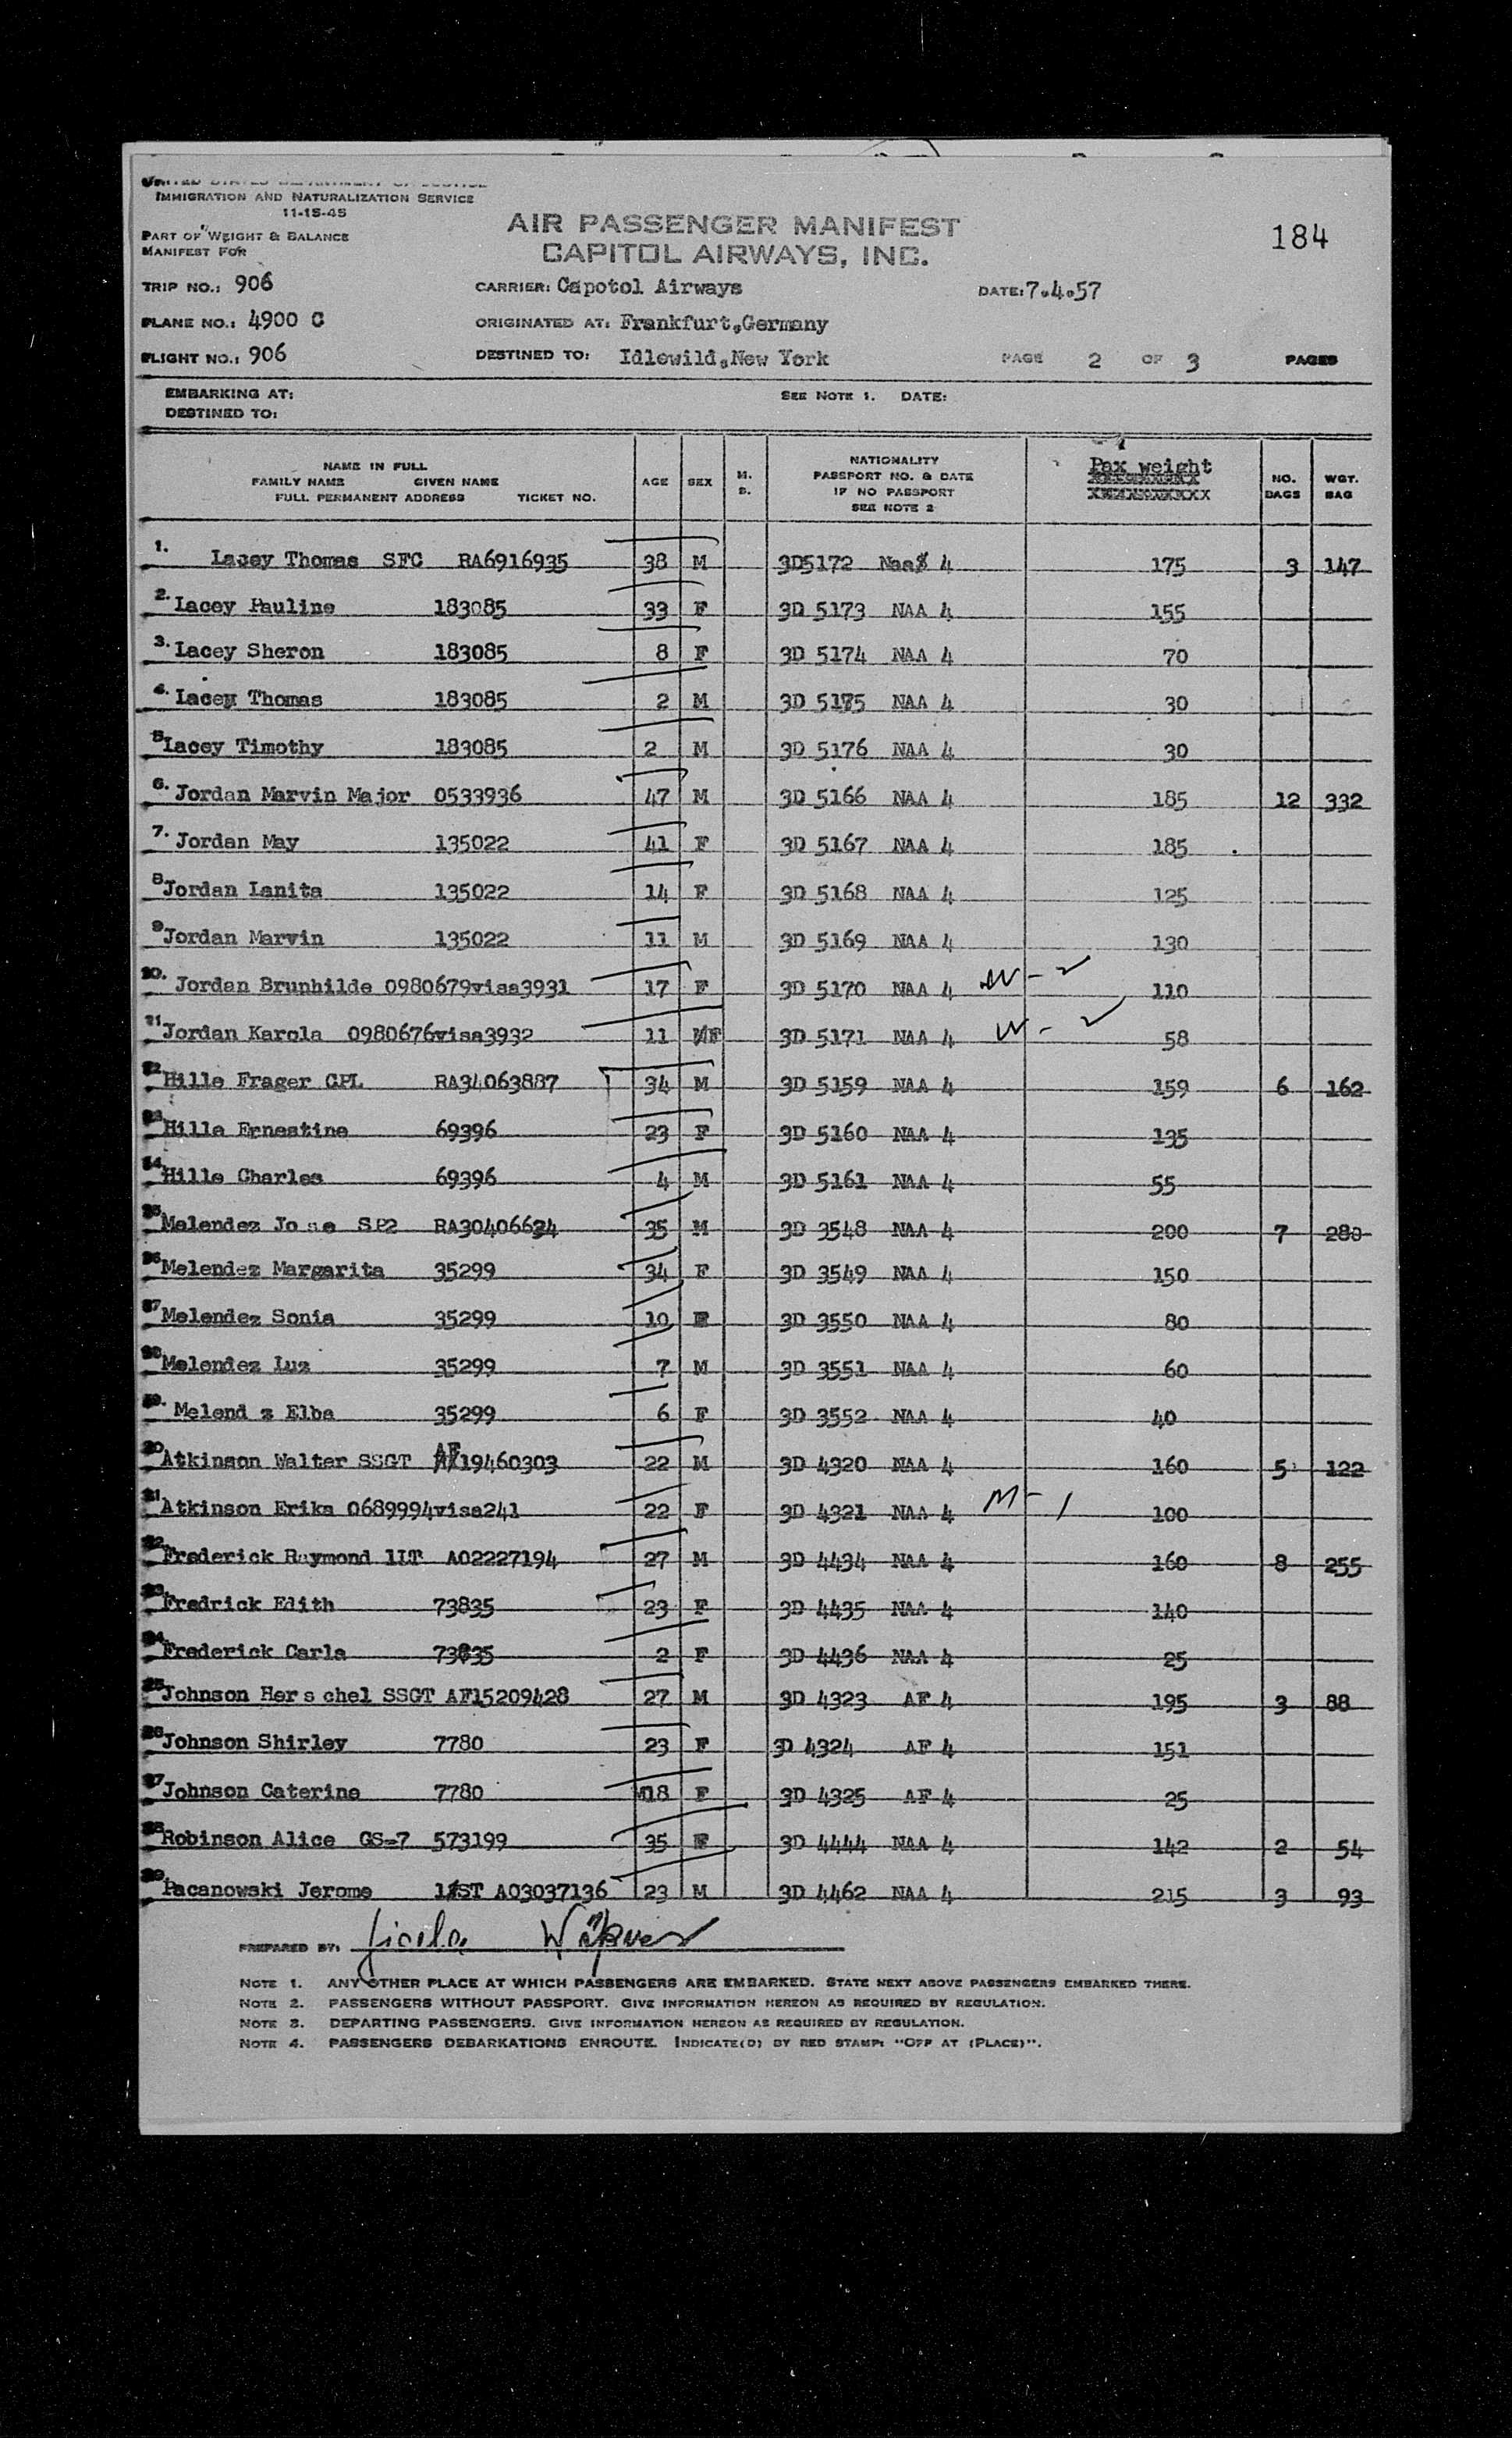 UNITED STATES DEPARTMENT OF JUSTICE
IMMIGRATION AND NATURALIZATION SERVICE
11-15-45
PART OF WEIGHT & BALANCE
MANIFEST FOR
AIR PASSENGER MANIFEST
CAPITOL AIRWAYS, INC.
184
TRIP NO.: 906 CARRIER: Capotol Airways DATE: 7.4.57
PLANE NO.: 4900 C ORIGINATED AT: Frankfurt,Germany
FLIGHT NO.: 906 DESTINED TO: Idlewild,New York PAGE 2 OF 3 PAGES
EMBARKING AT: SEE NOTE 1. DATE:
DESTINED TO:
NAME IN FULL
FAMILY NAME GIVEN NAME
FULL PERMANENT ADDRESS TICKET NO.
AGE SEX M. S.
NATIONALITY
PASSPORT NO. & DATE
IF NO PASSPORT
SEE NOTE 2
Pax weight
NO. BAGS
WGT. BAG
1. Lacey Thomas SFC RA6916935 38 M 3D5172 Naa 4 175 3 147
2. Lacey Pauline 183085 33 F 3D 5173 NAA 4 155
3. Lacey Sheron 183085 8 F 3D 5174 NAA 4 70
4. Lacey Thomas 183085 2 M 3D 5175 NAA 4 30
5 Lacey Timothy 183085 2 M 3D 5176 NAA 4 30
6. Jordan Marvin Major 0533936 47 M 3D 5166 NAA 4 185 12 332
7. Jordan May 135022 41 F 3D 5167 NAA 4 185
8 Jordan Lanita 135022 14 F 3D 5168 NAA 4 125
9 Jordan Marvin 135022 11 M 3D 5169 NAA 4 130
10. Jordan Brunhilde 0980679visa3931 17 F 3D 5170 NAA 4 110
11 Jordan Karola 0980676visa3932 11 F 3D 5171 NAA 4 58
12 Hille Frager CPL RA34063887 34 M 3D 5159 NAA 4 159 6 162
13 Hille Ernestine 69396 23 F 3D 5160 NAA 4 135
14 Hille Charles 69396 4 M 3D 5161 NAA 4 55
15 Melendez Jose SP2 RA30406624 35 M 3D 3548 NAA 4 200 7 280
16 Melendez Margarita 35299 34 F 3D 3549 NAA 4 150
17 Melendez Sonia 35299 10 F 3D 3550 NAA 4 80
18 Melendez Luz 35299 7 M 3D 3551 NAA 4 60
19. Melend z Elba 35299 6 F 3D 3552 NAA 4 40
20 Atkinson Walter SSGT AF19460303 22 M 3D 4320 NAA 4 160 5 122
21 Atkinson Erika 0689994visa241 22 F 3D 4321 NAA 4 M - 1 100
22 Frederick Raymond 1LT AO2227194 27 M 3D 4434 NAA 4 160 8 255
23. Fredrick Edith 73835 23 F 3D 4435 NAA 4 140
24 Frederick Carla 73835 2 F 3D 4436 NAA 4 25
25 Johnson Herschel SSGT AF15209428 27 M 3D 4323 AF 4 195 3 88
26 Johnson Shirley 7780 23 F 3D 4324 AF 4 151
27 Johnson Caterine 7780 M18 F 3D 4325 AF 4 25
28 Robinson Alice GS-7 573199 35 F 3D 4444 NAA 4 142 2 54
29. Pacanowski Jerome 1ST AO3037136 23 M 3D 4462 NAA 4 215 3 93
PREPARED BY:
NOTE 1. ANY OTHER PLACE AT WHICH PASSENGERS ARE EMBARKED. STATE NEXT ABOVE PASSENGERS EMBARKED THERE.
NOTE 2. PASSENGERS WITHOUT PASSPORT. GIVE INFORMATION HEREON AS REQUIRED BY REGULATION.
NOTE 3. DEPARTING PASSENGERS. GIVE INFORMATION HEREON AS REQUIRED BY REGULATION.
NOTE 4. PASSENGERS DEBARKATIONS ENROUTE. INDICATE(D) BY RED STAMP: "OFF AT (PLACE)".